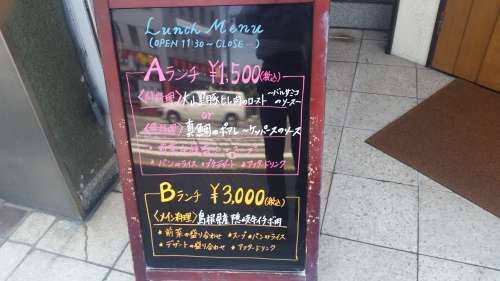 Lunch Menu
(OPEN 11:30～CLOSE…)
Aランチ ¥1,500(税込)
豚 肉のロースト ～バルサミコのソース～
or
真鯛のポワレ ～ケッパーのソース
・パンorライス ・プチデザート ・アフタードリンク
Bランチ ¥3,000(税込)
〈メイン料理〉島根県産隠岐牛イチボ肉
・前菜の盛り合わせ ・スープ ・パンorライス
・デザートの盛り合わせ ・アフタードリンク